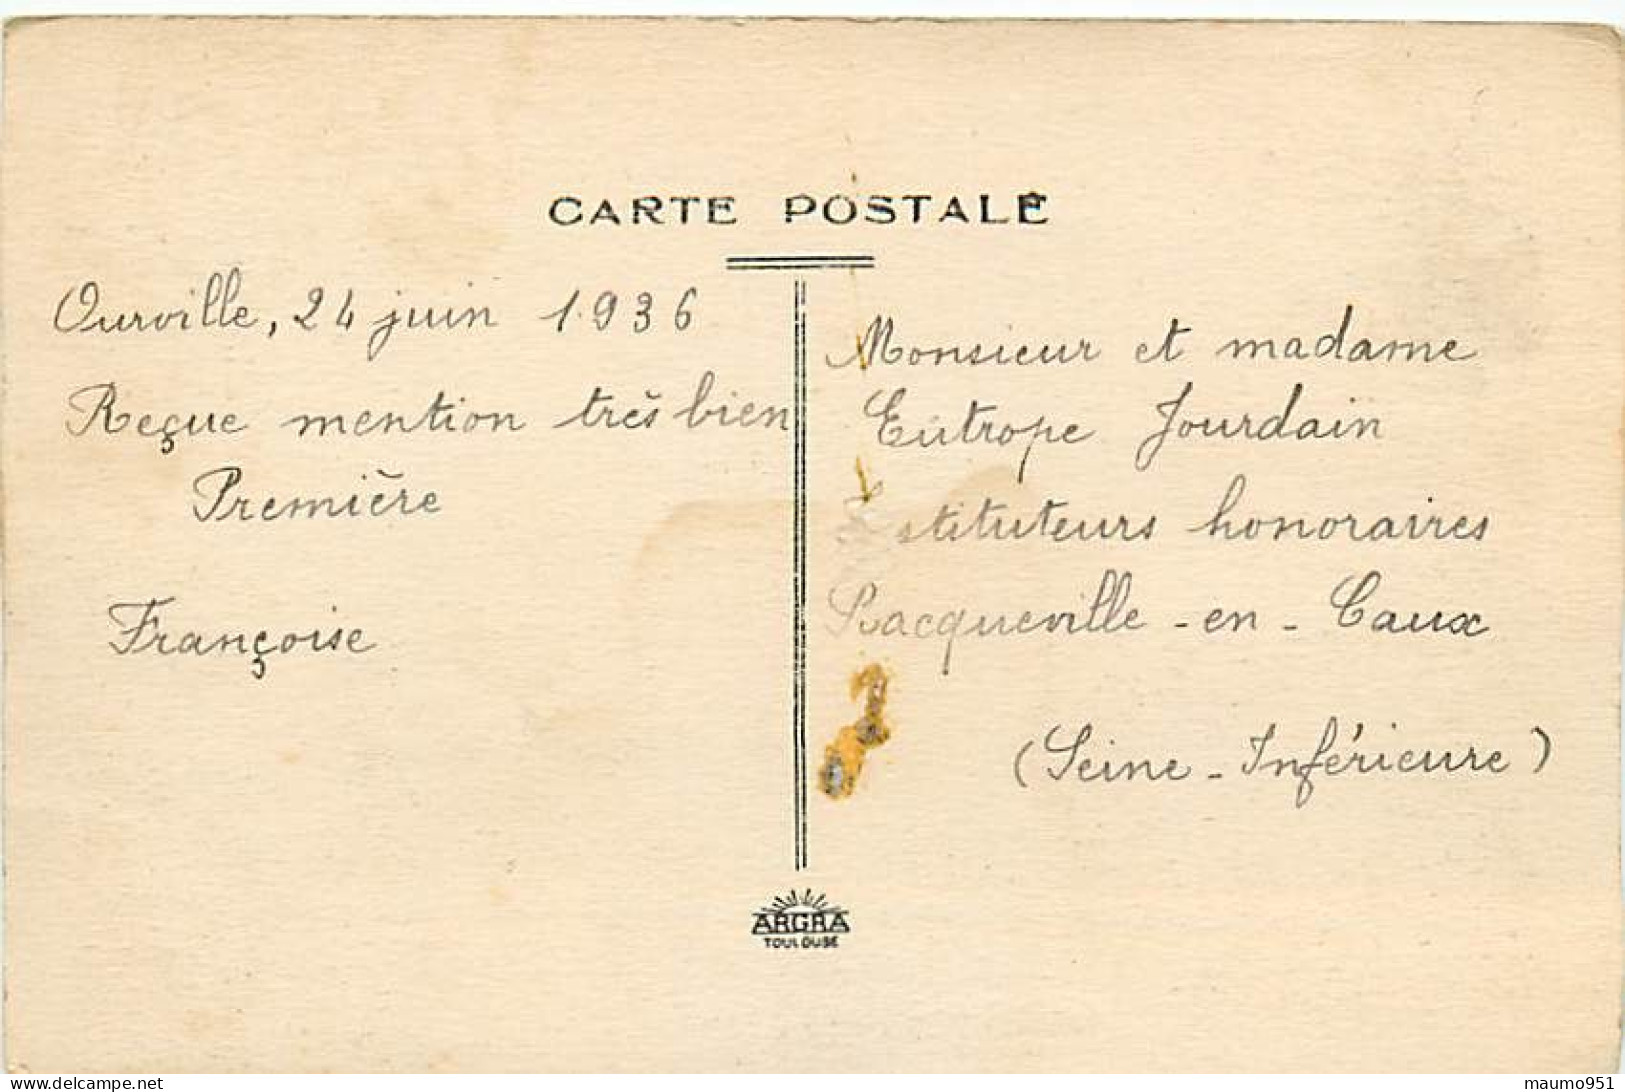 CARTE POSTALE
Ourville, 24 juin 1936
Reçue mention très bien
Première
Françoise
Monsieur et madame
Eutrope Jourdain
stituteurs honoraires
Bacqueville-en-Caux
(Seine-Inférieure)
ARGRA
TOULOUSE
delcampe.net
maumo951